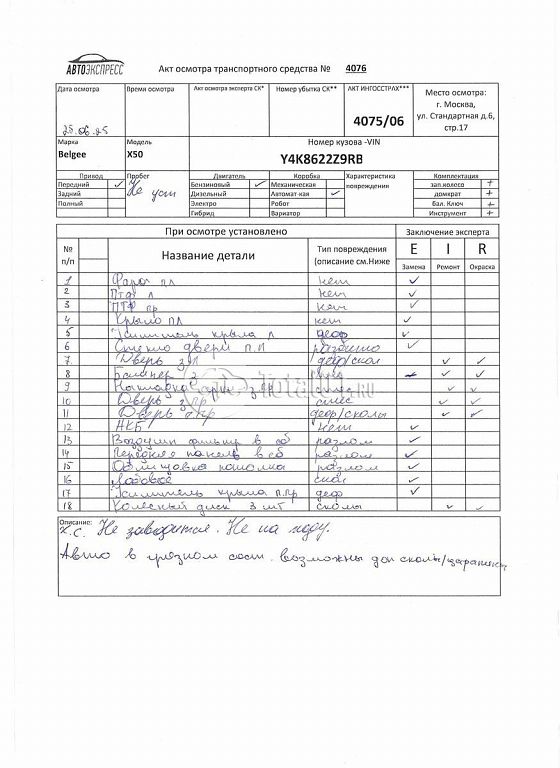 АВТОЭКСПРЕСС
Акт осмотра транспортного средства № 4076
Дата осмотра
25.06.25
Время осмотра
Акт осмотра эксперта СК*
Номер убытка СК**
АКТ ИНГОССТРАХ***
4075/06
Место осмотра:
г. Москва,
ул. Стандартная д.6,
стр.17
Марка
Belgee
Модель
X50
Номер кузова -VIN
Y4K8622Z9RB
Привод
Передний ✓
Задний
Полный
Пробег
Не уст
Двигатель
Бензиновый ✓
Дизельный
Электро
Гибрид
Коробка
Механическая
Автомат-кая ✓
Робот
Вариатор
Характеристика
повреждения
Комплектация
зап.колесо +
домкрат +
бал. Ключ +
Инструмент +
При осмотре установлено
Заключение эксперта
№
п/п
Название детали
Тип повреждения
(описание см.Ниже
E I R
Замена Ремонт Окраска
1 Фара пл нет ✓
2 ПТФ л нет ✓
3 ПТФ пр нет ✓
4 Крыло пл нет ✓
5 Усилитель крыла л деф ✓
6 Стекло двери п.л разбито ✓
7 Дверь з л деф/скол ✓ ✓
8 Бампер з ✓ ✓
9 з пр ✓ ✓
10 Дверь з пр ✓ ✓
11 Дверь п пр деф/сколы ✓ ✓
12 АКБ нет ✓
13 Воздушн фильтр в сб разлом ✓
14 Передняя панель в сб разлом ✓
15 Облицовка потолка разлом ✓
16 Лобовое скол ✓
17 Усилитель крыла п.пр деф ✓
18 Колесный диск 3 шт сколы ✓ ✓
Описание:
Х.С. Не заводится. Не на ходу.
Авто в грязном сост. возможны доп сколы/царапины